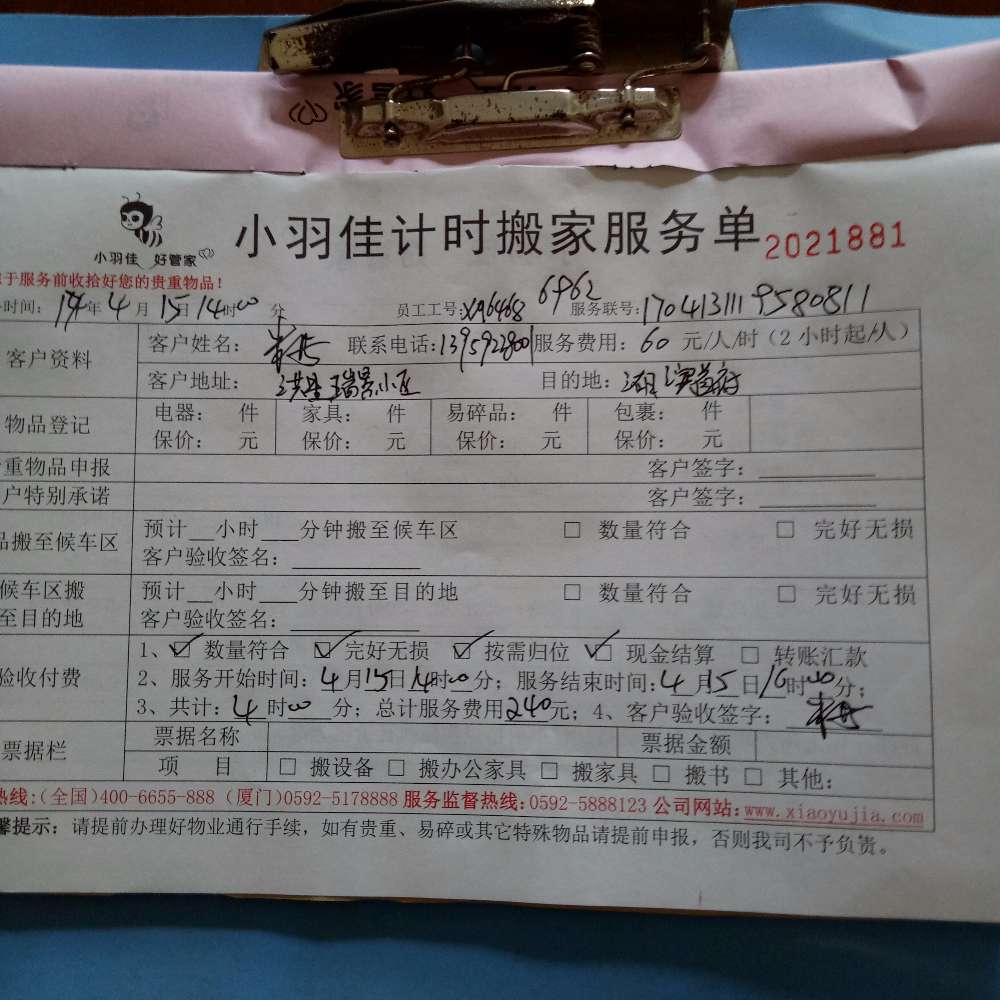 小羽佳计时搬家服务单 2021881
小羽佳 好管家
于服务前收拾好您的贵重物品！
时间：17年4月15日14时00分 员工工号：XM6468 6962 服务联号：1704131119580811
客户资料 客户姓名： 联系电话： 服务费用：60元/人/时（2小时起/人）
客户地址： 瑞景小区 目的地：
物品登记 电器： 件 家具： 件 易碎品： 件 包裹： 件
保价： 元 保价： 元 保价： 元 保价： 元
重物品申报 客户签字：
户特别承诺 客户签字：
品搬至候车区 预计__小时___分钟搬至候车区 □ 数量符合 □ 完好无损
客户验收签名：
候车区搬至目的地 预计__小时___分钟搬至目的地 □ 数量符合 □ 完好无损
客户验收签名：
验收付费 1、☑ 数量符合 ☑ 完好无损 ☑ 按需归位 ☑ 现金结算 □ 转账汇款
2、服务开始时间：4月15日14时00分；服务结束时间：4月15日16时00分；
3、共计：4时00分；总计服务费用240元；4、客户验收签字：
票据栏 票据名称 票据金额
项 目 □ 搬设备 □ 搬办公家具 □ 搬家具 □ 搬书 □ 其他：
热线：(全国)400-6655-888 (厦门)0592-5178888 服务监督热线：0592-5888123 公司网站：www.xiaoyujia.com
馨提示：请提前办理好物业通行手续，如有贵重、易碎或其它特殊物品请提前申报，否则我司不予负责。